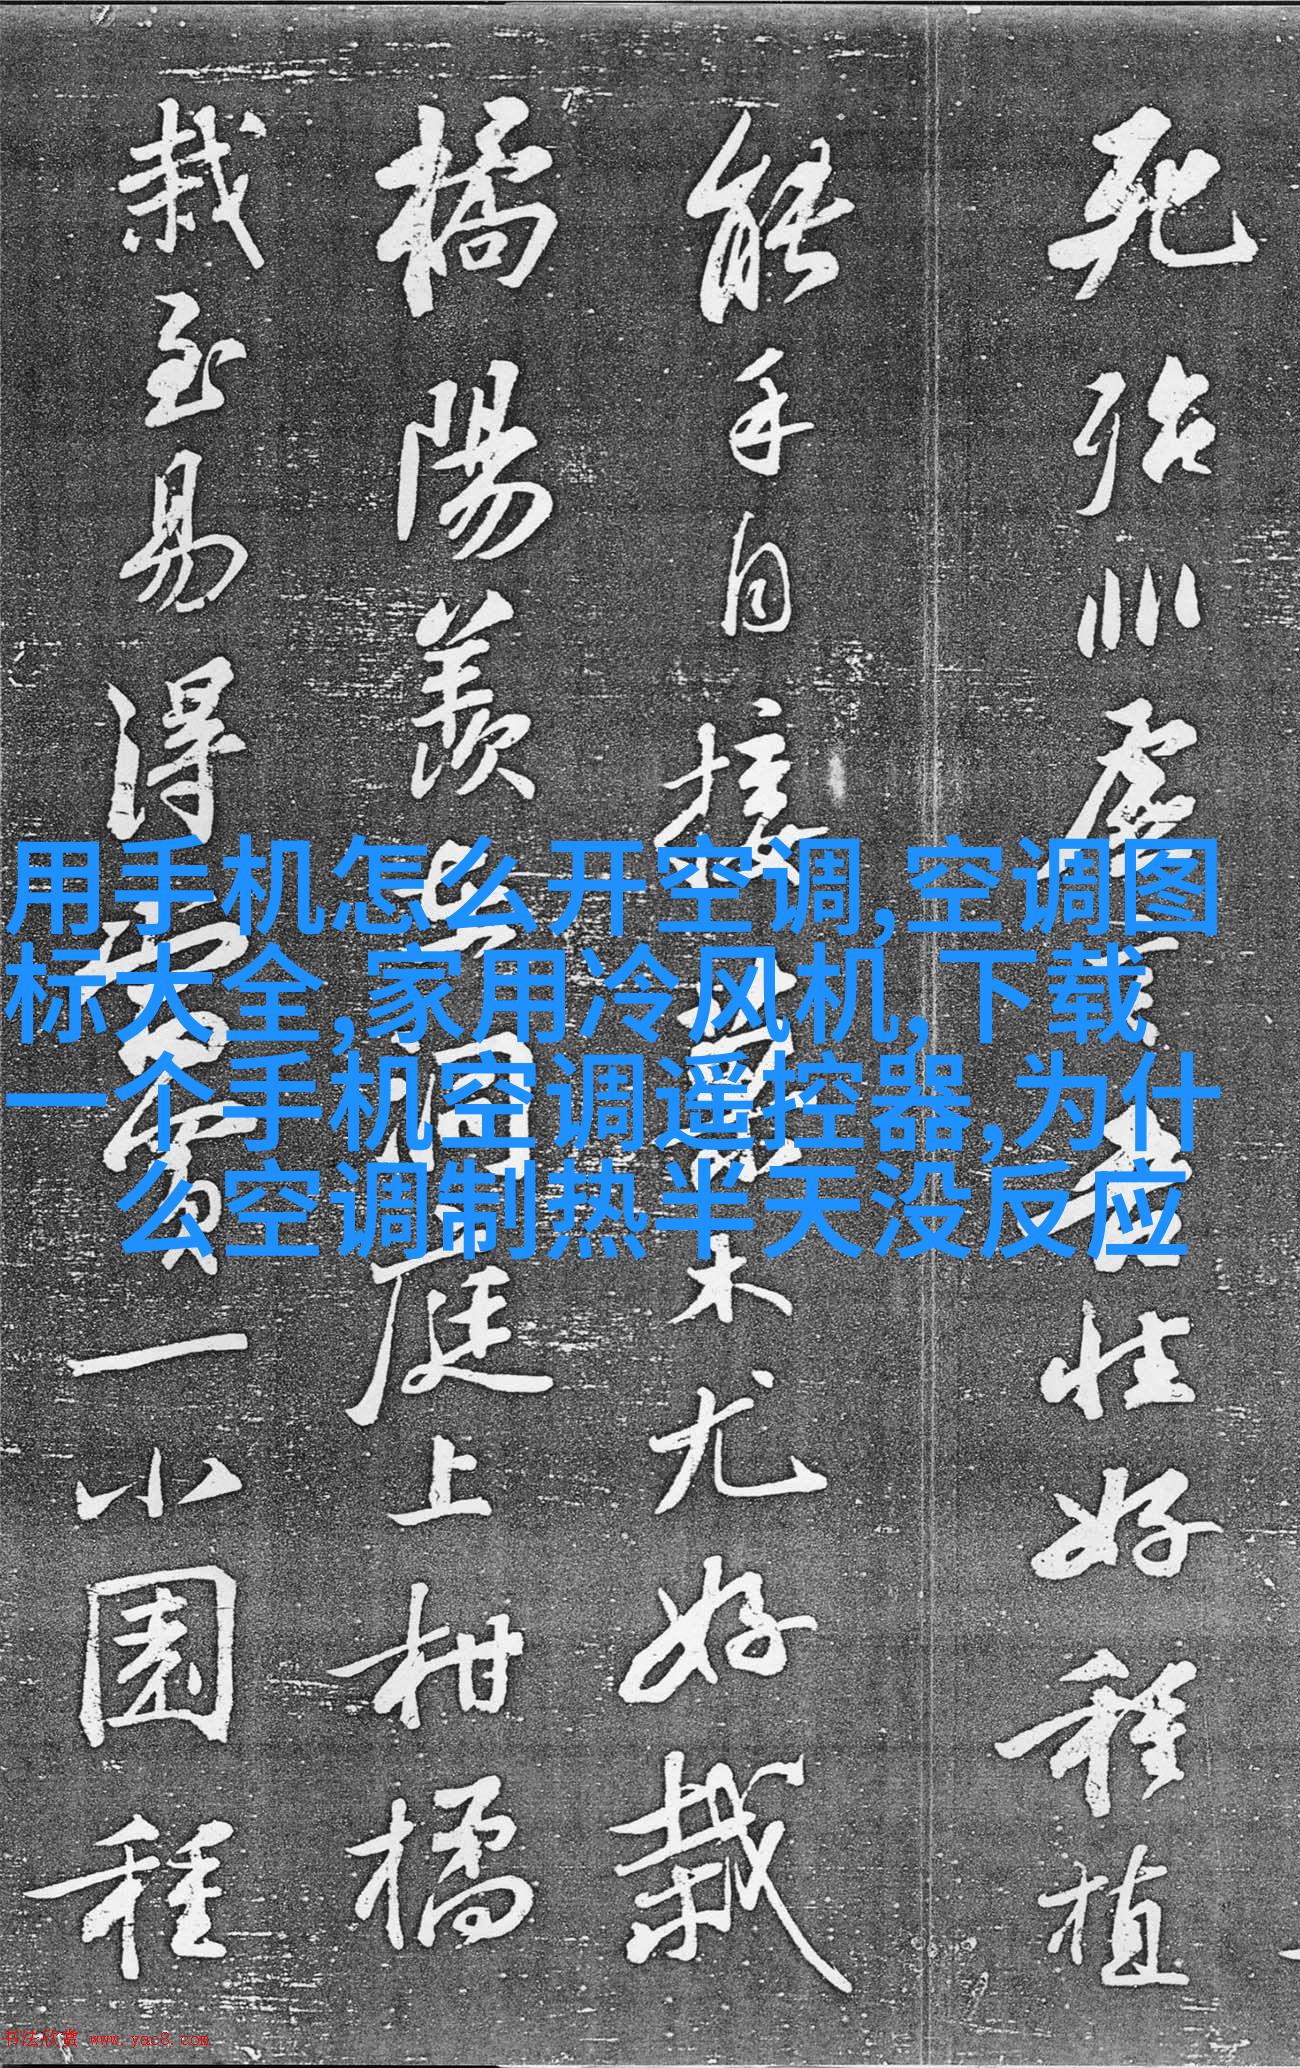 死殆非虛言吾性好種植
能手自接果木尤好栽
橘陽羨在洞庭上柑橘
栽至易得當買一小園種
用手机怎么开空调,空调图
标大全,家用冷风机,下载
一个手机空调遥控器,为什
么空调制热半天没反应
书法欣赏 www.yac8.com